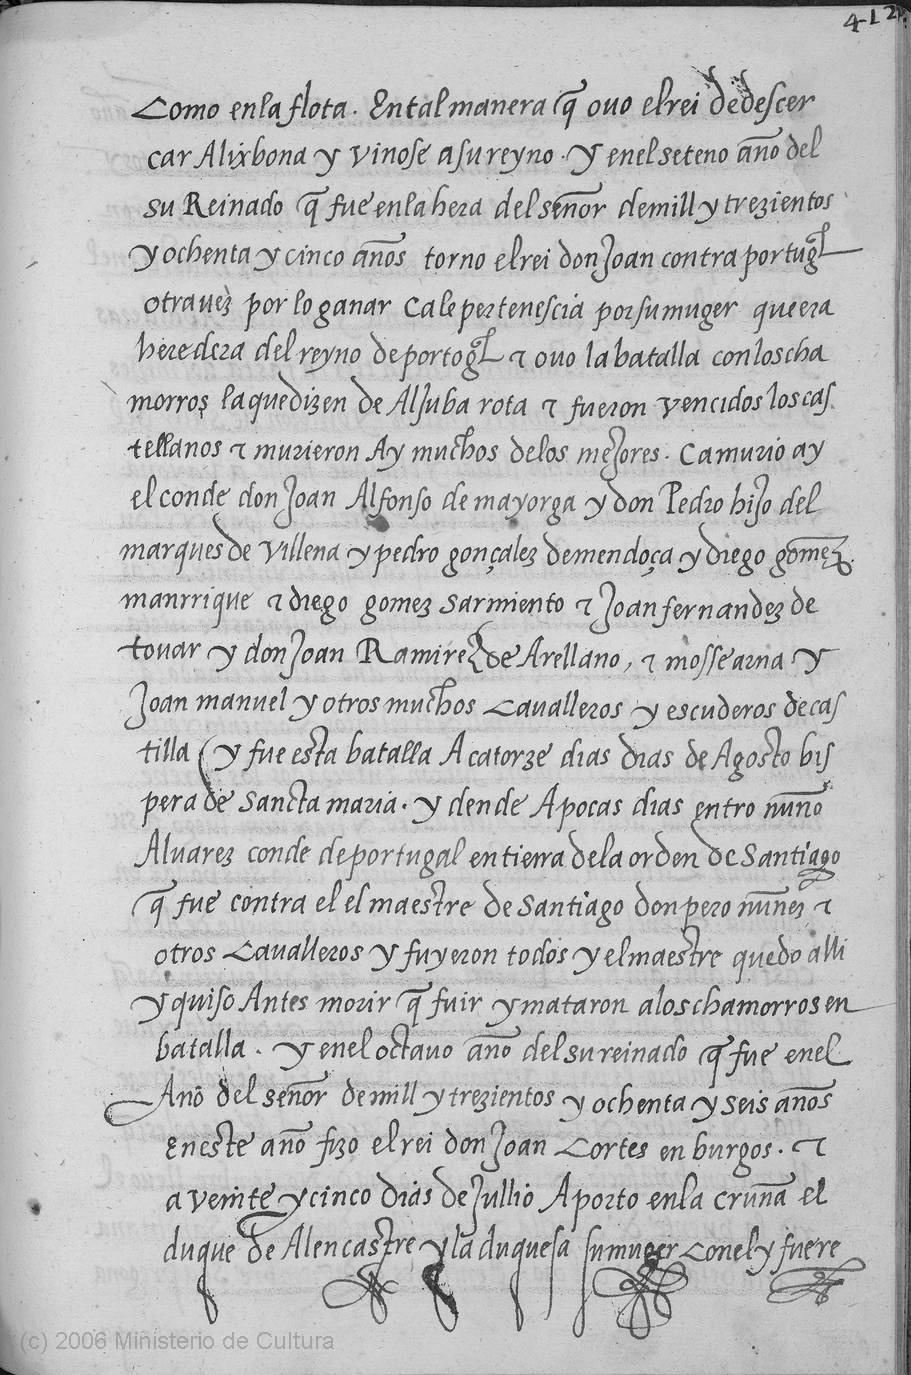 412
Como enla flota. Ental manera q̃ ouo elrei dedescer
car Alixbona y vinose asureyno. y enelseteno año del
su Reinado q̃ fue enla hera del señor demill y trezientos
y ochenta y cinco años torno elrei don Joan contra portugl
otra vez por lo ganar Cale pertenescia por su muger que era
heredera del reyno deportogl τ ouo la batalla con los cha
morros la que dizen de Aljuba rota τ fueron vencidos los cas
tellanos τ murieron Ay muchos delos mejores. Ca murio ay
el conde don Joan Alfonso de mayorga y don Pedro hijo del
marques de Villena y pedro gonçalez demendoça y diego gomez
manrrique τ diego gomez sarmiento τ Joan fernandez de
touar y don Joan Ramirez de Arellano, τ mosse arna y
Joan manuel y otros muchos Caualleros y escuderos de cas
tilla (y fue esta batalla A catorze dias dias de Agosto bis
pera de sancta maria. y dende A pocas dias entro nuño
Aluarez conde de portugal en tierra dela orden de Santiago
q̃ fue contra el el maestre de Santiago don pero nuñez τ
otros Caualleros y fuyeron todos y el maestre quedo alli
y quiso Antes morir q̃ fuir y mataron alos chamorros en
batalla. y enel octauo año del su reinado q̃ fue enel
Año del señor de mill y trezientos y ochenta y seis años
Eneste año fizo el rei don Joan Cortes en burgos. τ
a veinte y cinco dias de Jullio Aporto enla cruña el
duque de Alencastre y la duquesa su muger con el y fuere
(c) 2006 Ministerio de Cultura